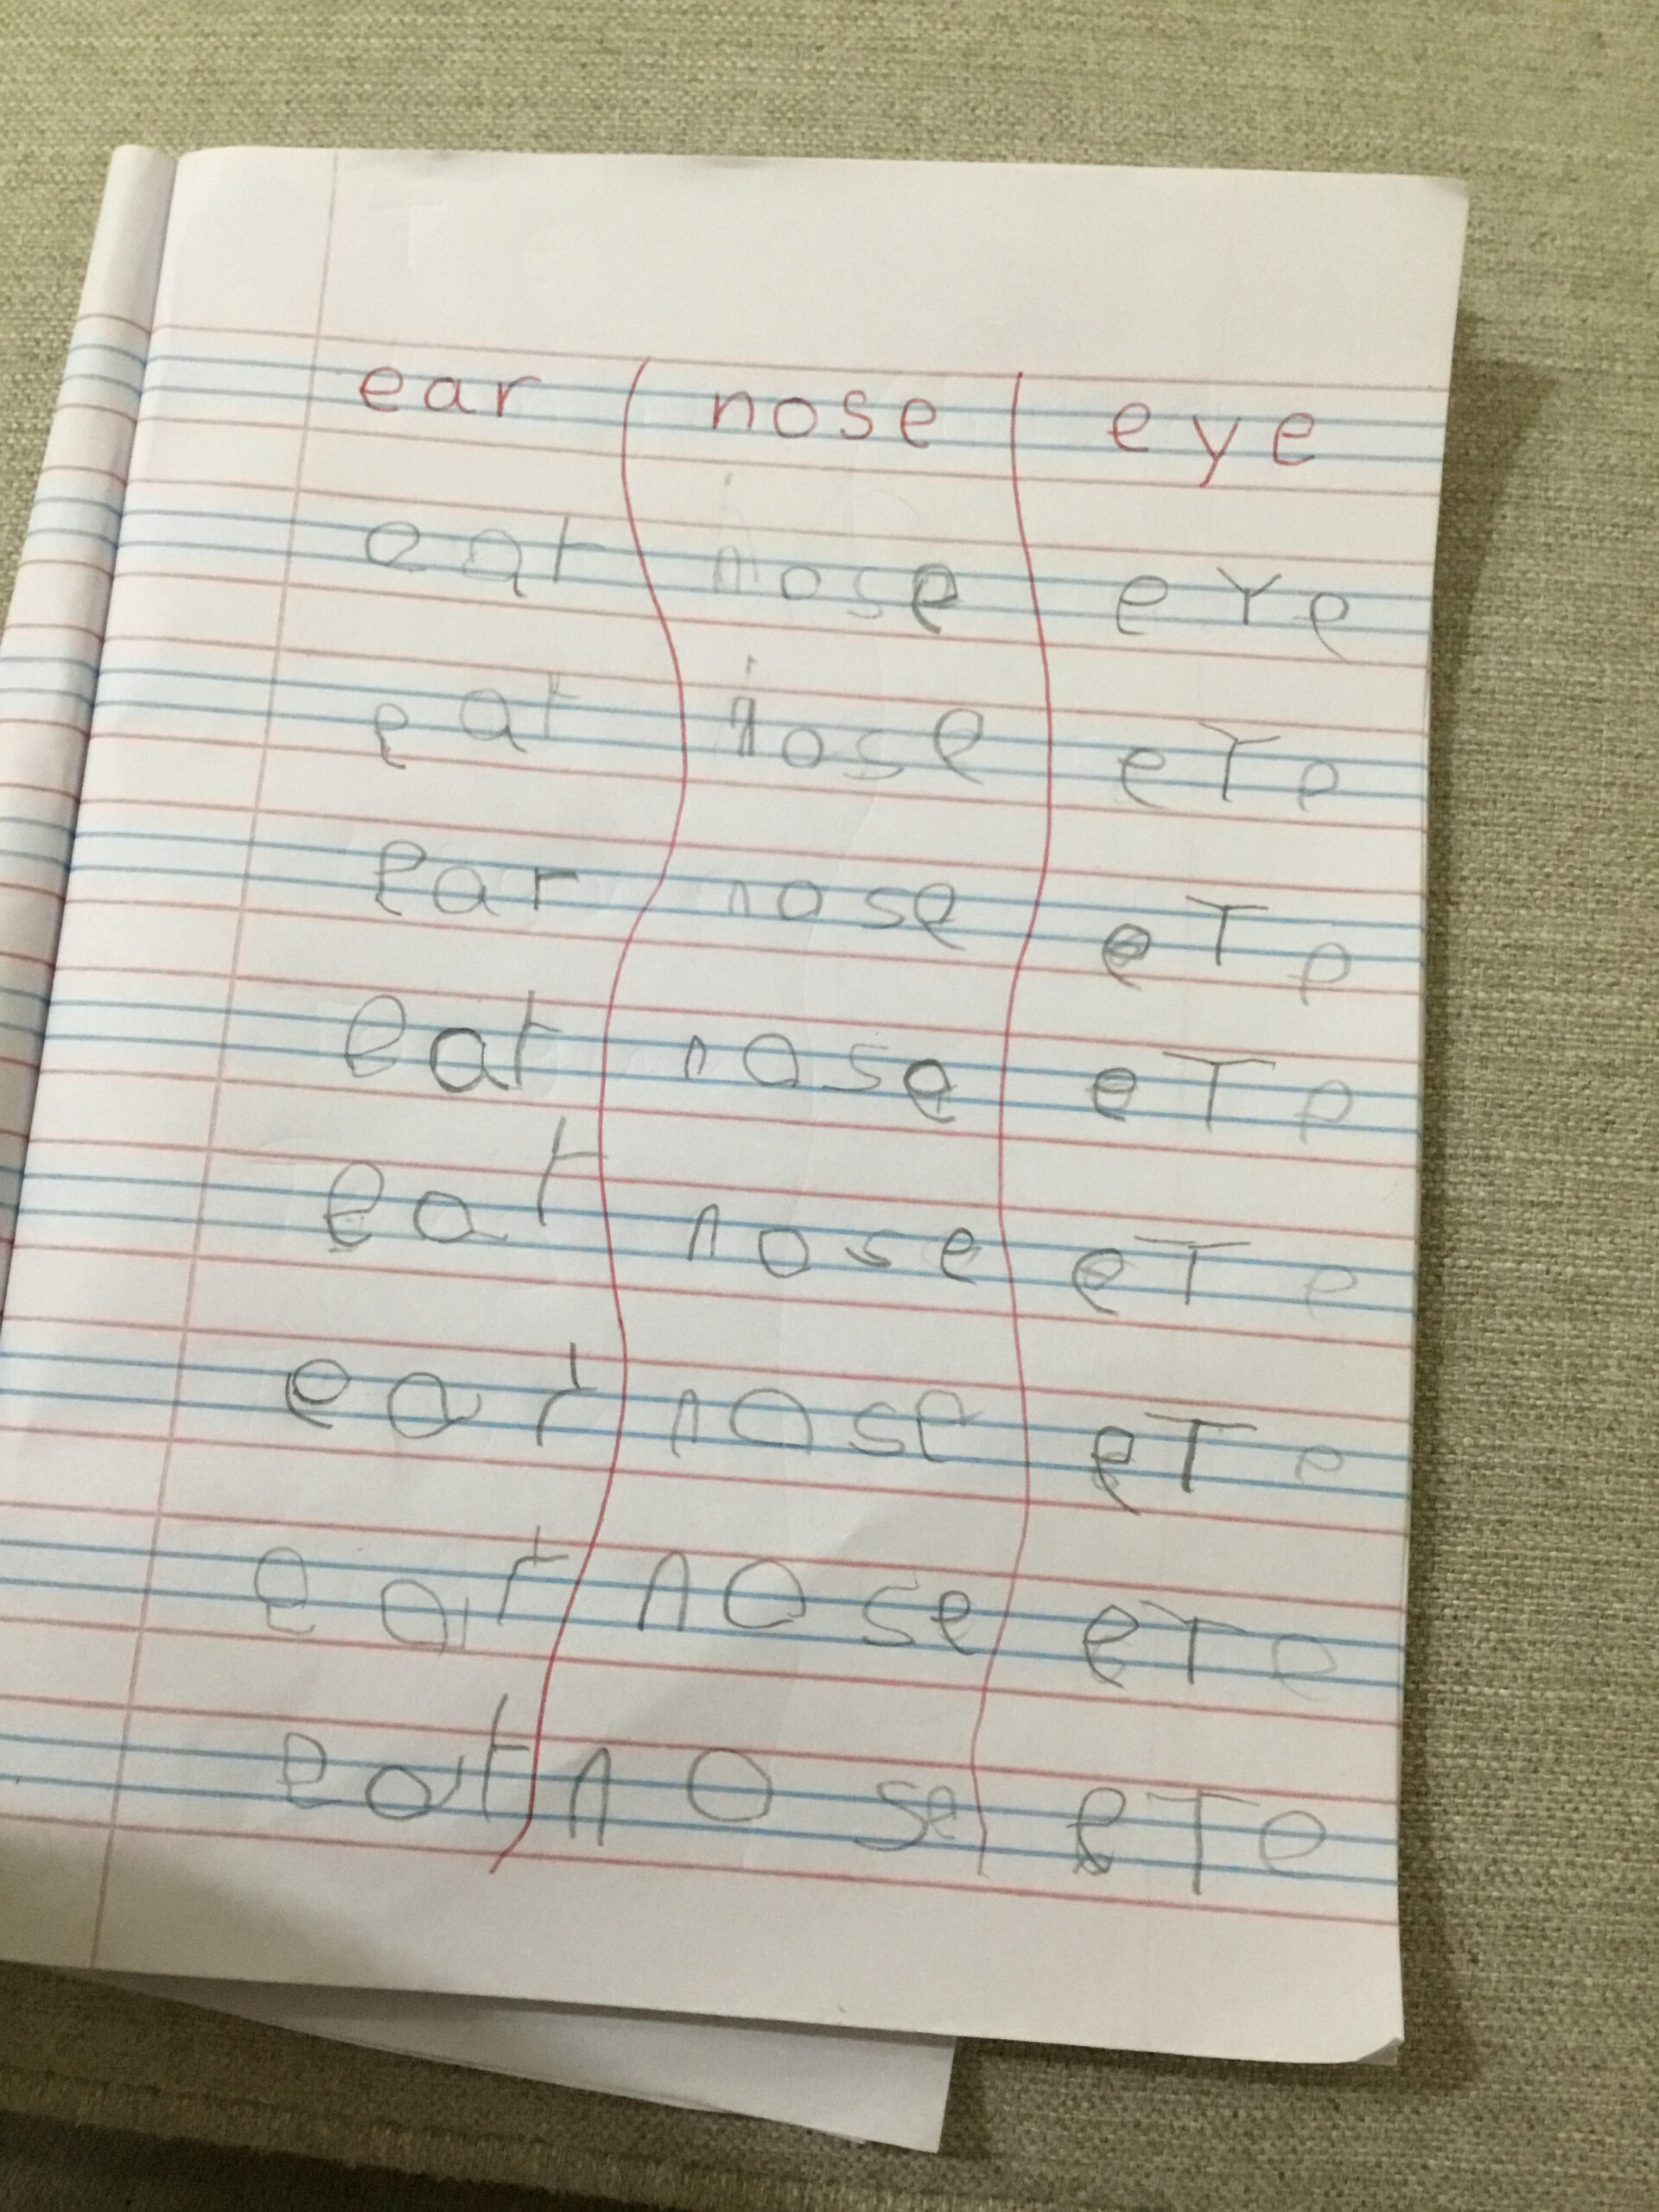 ear nose eye
eat nose eYe
eat nose eTe
ear nose eTe
eat nose eTe
eat nose eTe
ear nose eTe
ear nose eTe
eat nose eTe